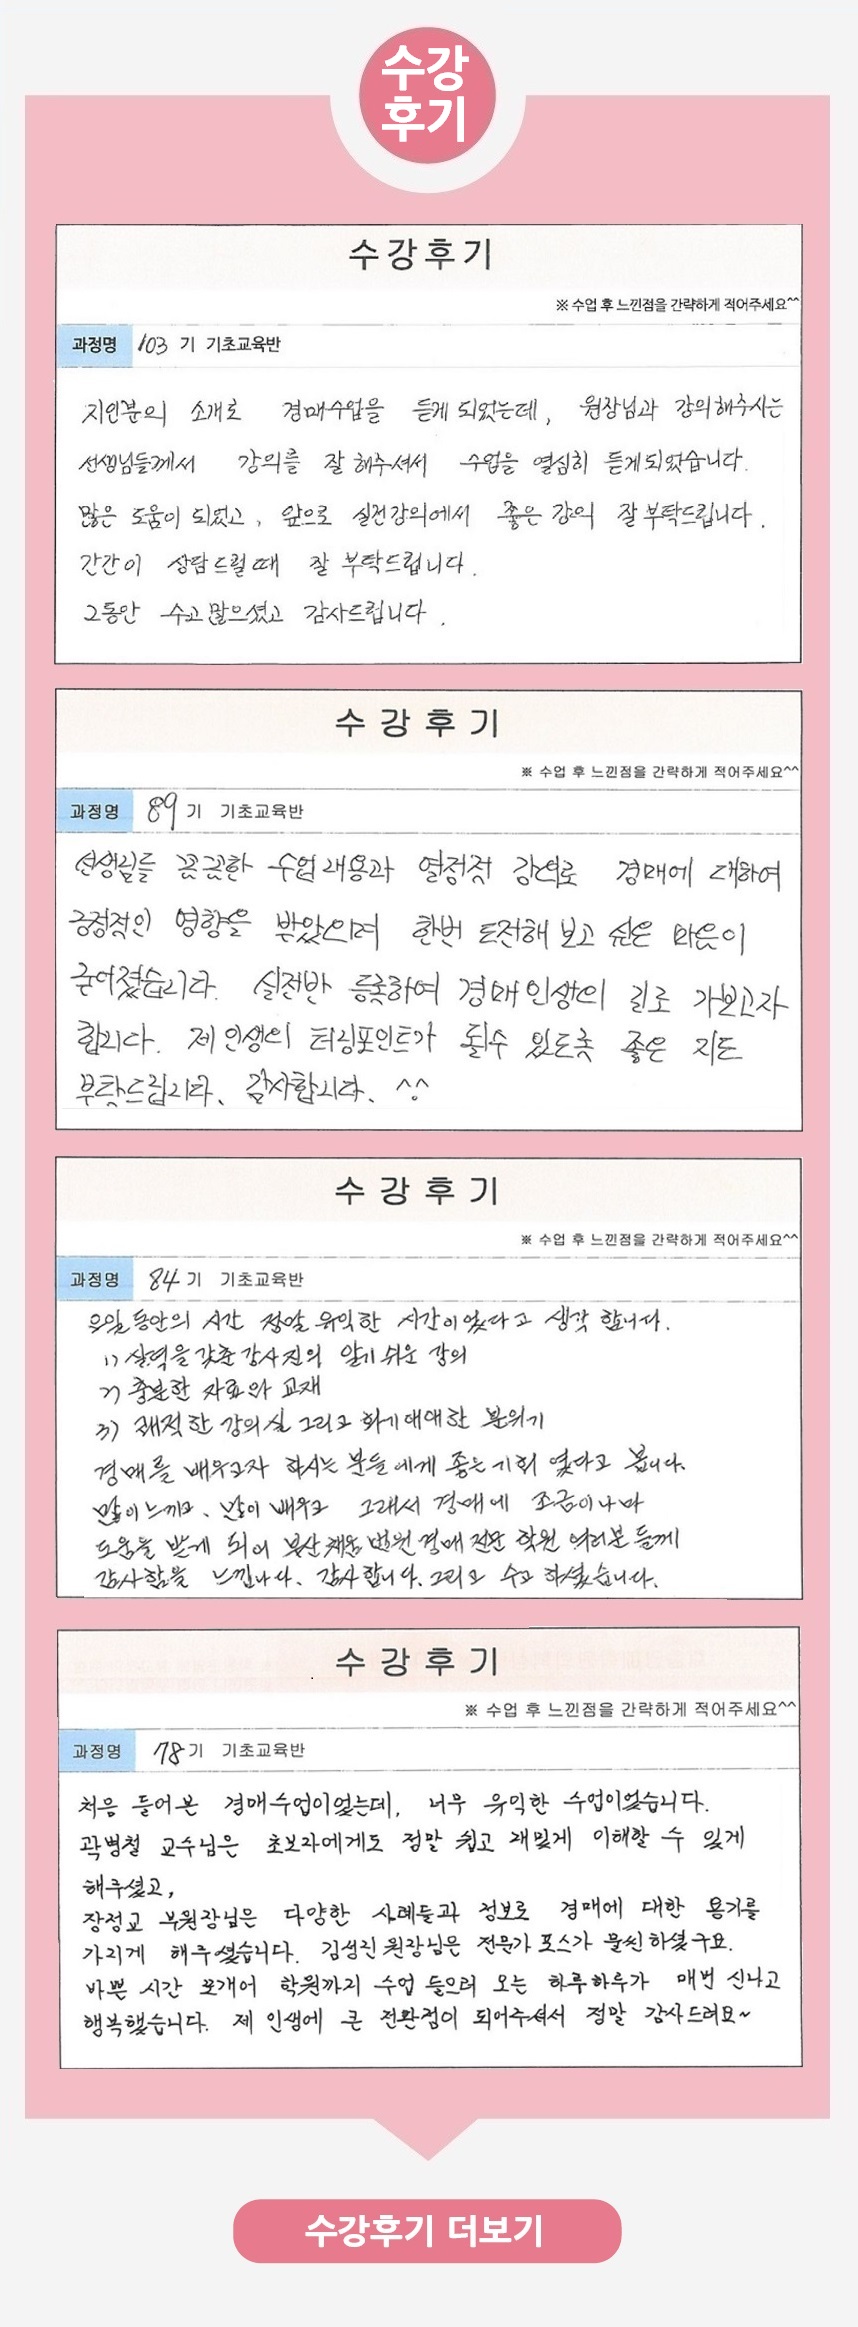 수강
후기
수강후기
※ 수업 후 느낀점을 간략하게 적어주세요^^
과정명 103 기 기초교육반
지인분의 소개로 경매수업을 듣게 되었는데, 원장님과 강의해주시는
선생님들께서 강의를 잘 해주셔서 수업을 열심히 듣게되었습니다.
많은 도움이 되었고, 앞으로 실전강의에서 좋은 강의 잘 부탁드립니다.
간간이 상담드릴때 잘 부탁드립니다.
그동안 수고많으셨고 감사드립니다.
수강후기
※ 수업 후 느낀점을 간략하게 적어주세요^^
과정명 89기 기초교육반
선생님들 꼿꼿한 수업내용과 열정적 강의로 경매에 대하여
긍정적인 영향을 받았으며 한번 도전해 보고 싶은 마음이
굳어졌습니다. 실전반 등록하여 경매인생의 길로 가보고자
합니다. 제 인생의 터닝포인트가 될수 있도록 좋은 지도
부탁드립니다. 감사합니다. ^^
수강후기
※ 수업 후 느낀점을 간략하게 적어주세요^^
과정명 84기 기초교육반
동안의 시간 정말 유익한 시간이었다고 생각 합니다.
1) 실력을 갖춘 강사진의 알기 쉬운 강의
2) 충분한 자료와 교재
3) 쾌적한 강의실 그리고 화기애애한 분위기
경매를 배우고자 하시는 분들에게 좋은 기회 였다고 봅니다.
많이 느끼고, 많이 배우고 그래서 경매에 조금이나마
도움을 받게 되어 부산 법원경매 전문 학원 여러분들께
감사함을 느낍니다. 감사합니다. 그리고 수고 하셨습니다.
수강후기
※ 수업 후 느낀점을 간략하게 적어주세요^^
과정명 78기 기초교육반
처음 들어본 경매수업이었는데, 너무 유익한 수업이었습니다.
곽병철 교수님은 초보자에게도 정말 쉽고 재밌게 이해할 수 있게
해주셨고,
장정교 부원장님은 다양한 사례들과 정보로 경매에 대한 용기를
가지게 해주셨습니다. 김성진 원장님은 전문가 포스가 물씬하셨구요.
바쁜 시간 쪼개어 학원까지 수업 들으러 오는 하루하루가 매번 신나고
행복했습니다. 제 인생에 큰 전환점이 되어주셔서 정말 감사드려요~
수강후기 더보기